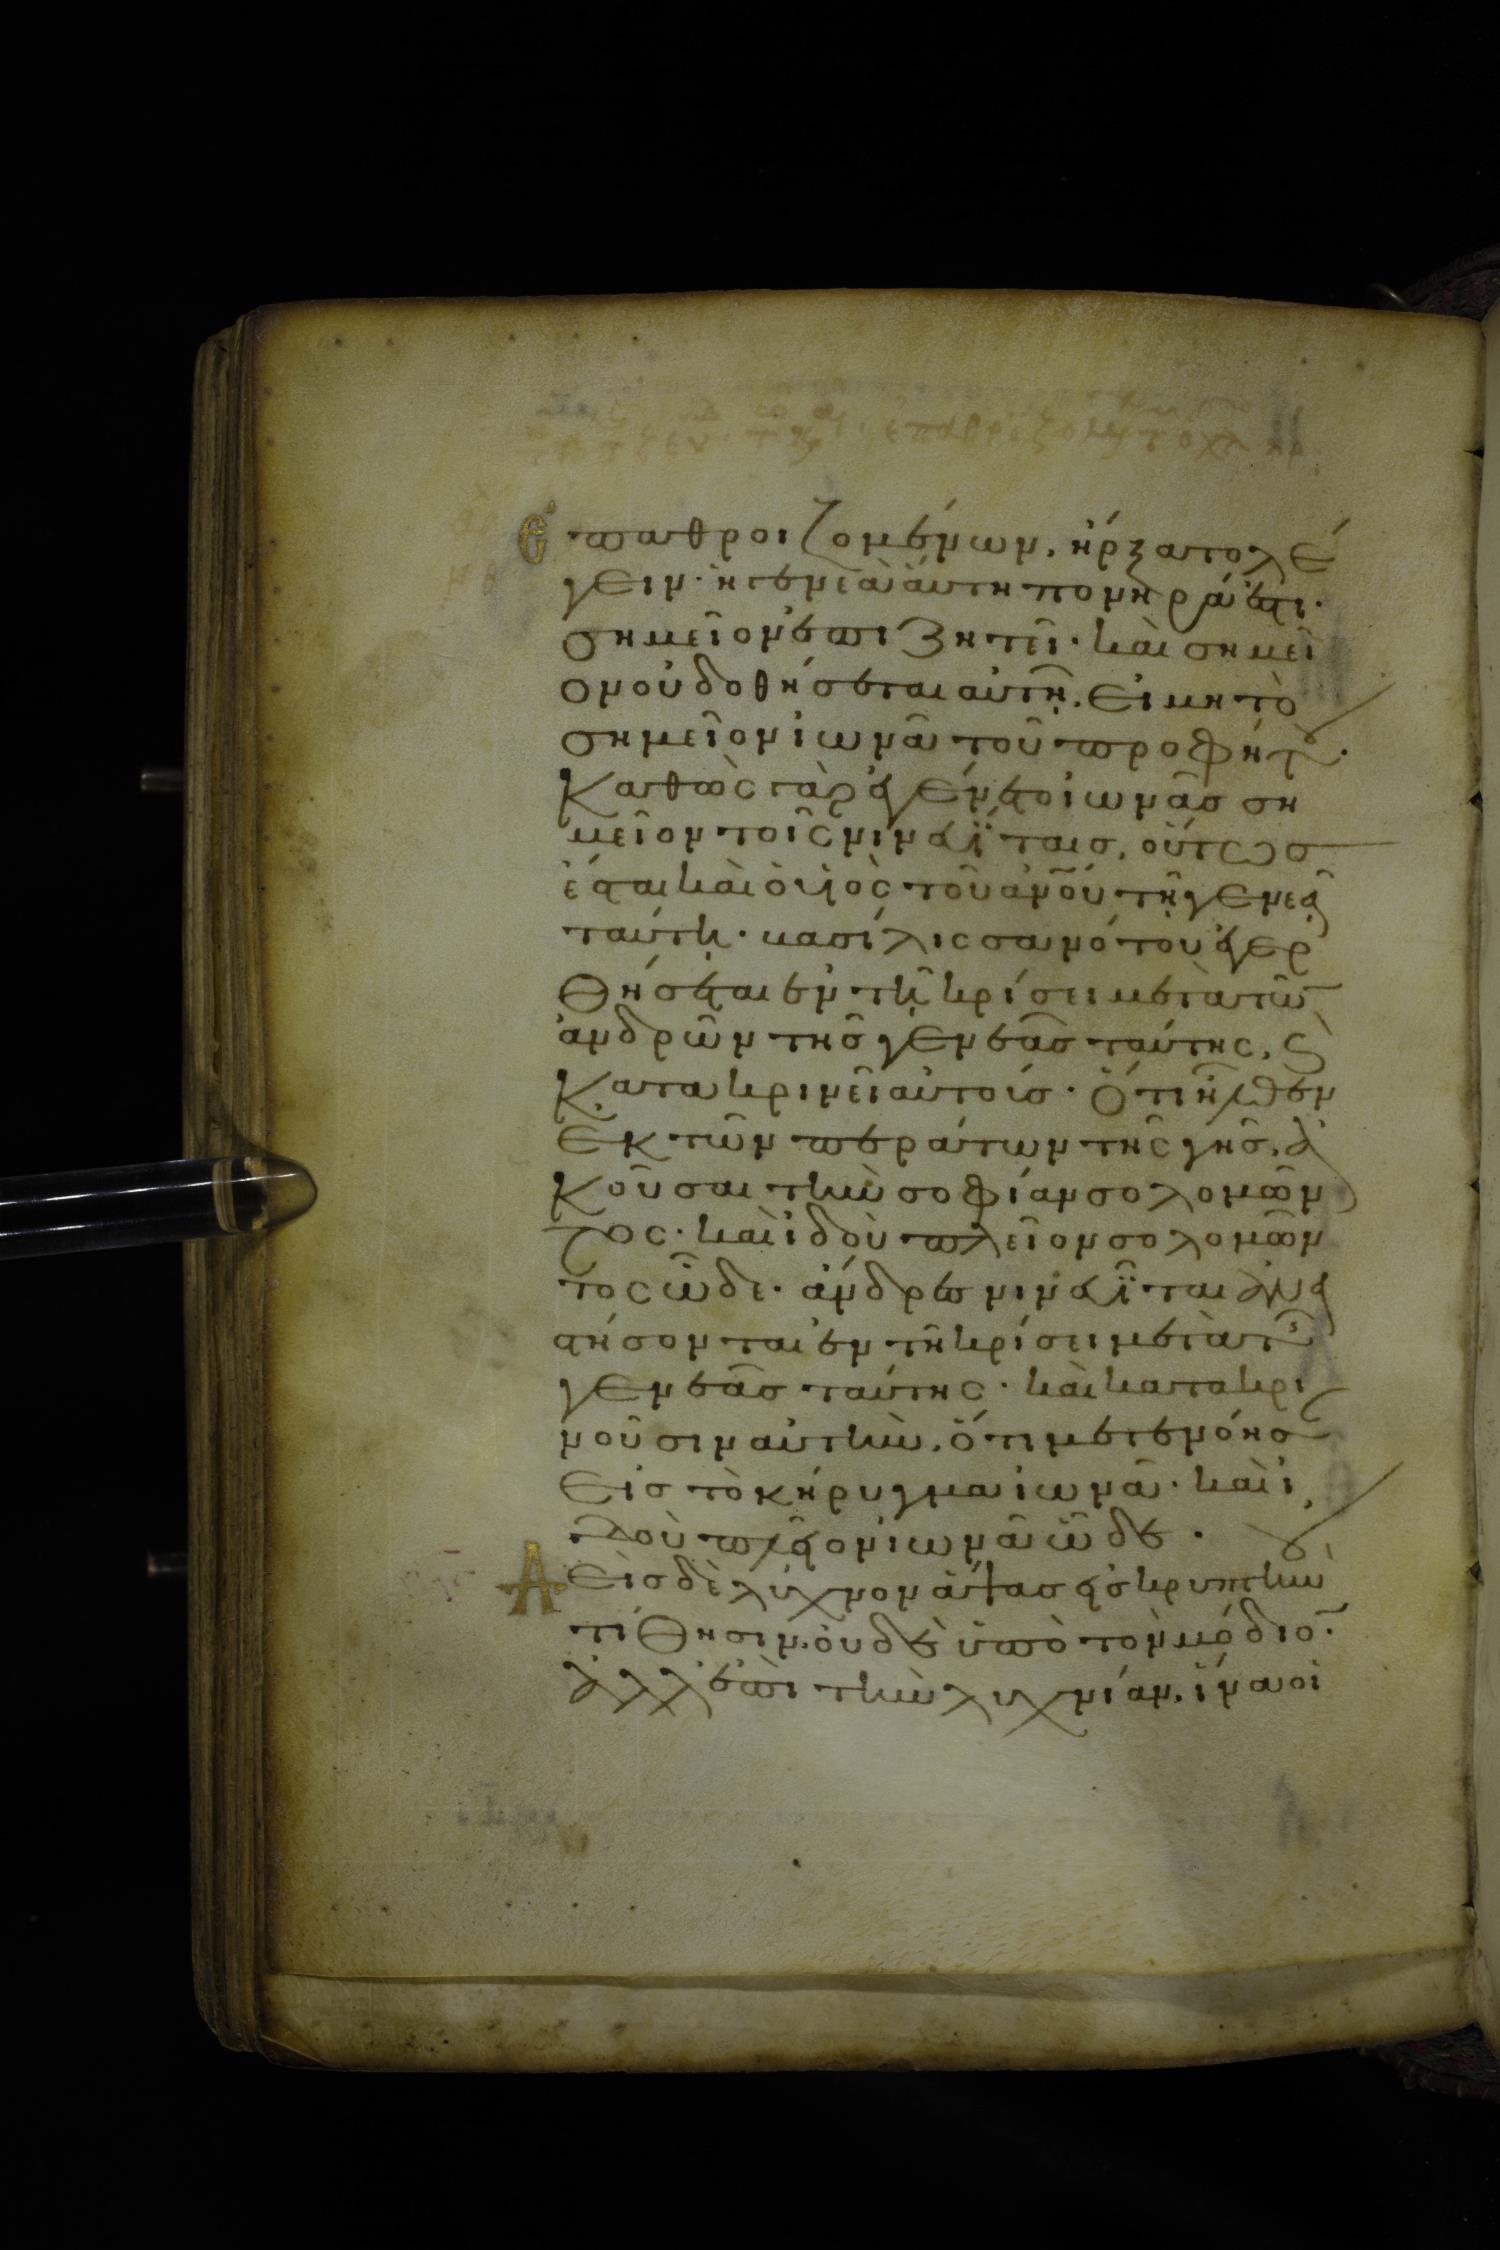 Ἐπαθροιζομένων, ἤρξατο λέ
γειν· ἡ γενεὰ αὕτη πονηρά ἐστι·
σημεῖον ἐπιζητεῖ· καὶ σημεῖ
ον οὐ δοθήσεται αὐτῆ, εἰ μὴ τὸ
σημεῖον ἰωνᾶ τοῦ προφήτου·
καθὼς γὰρ ἐγένετο ἰωνᾶς ση
μεῖον τοῖς νινευΐταις, οὕτως
ἔσται καὶ ὁ υἱὸς τοῦ ἀνου τῇ γενεᾷ
ταύτη· βασίλισσα νότου ἐγερ
θήσεται ἐν τῆ κρίσει μετὰ τῶν
ἀνδρῶν τῆς γενεᾶς ταύτης, ϗ
κατακρινεῖ αὐτούς· ὅτι ἦλθεν
ἐκ τῶν περάτων τῆς γῆς, ἀ
κοῦσαι τὴν σοφίαν σολομῶν
τος· καὶ ἰδοὺ πλεῖον σολομῶν
τος ὧδε· ἄνδρες νινευΐται ἀνα
στήσονται ἐν τῆ κρίσει μετὰ τῆς
γενεᾶς ταύτης· καὶ κατακρι
νοῦσιν αὐτὴν, ὅτι μετενόησαν
εἰς τὸ κήρυγμα ἰωνᾶ· καὶ ἰ
δοὺ πλεῖον ἰωνᾶ ὧδε·
Οὐεὶς δὲ λύχνον ἅψας εἰς κρυπτὴν
τίθησιν, οὐδὲ ὑπὸ τὸν μόδιον·
ἀλλ' ἐπὶ τὴν λυχνίαν, ἵνα οἱ